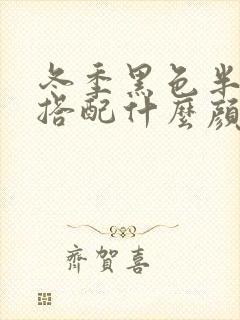 冬季黑色半
搭配什麼顏
齊賀喜